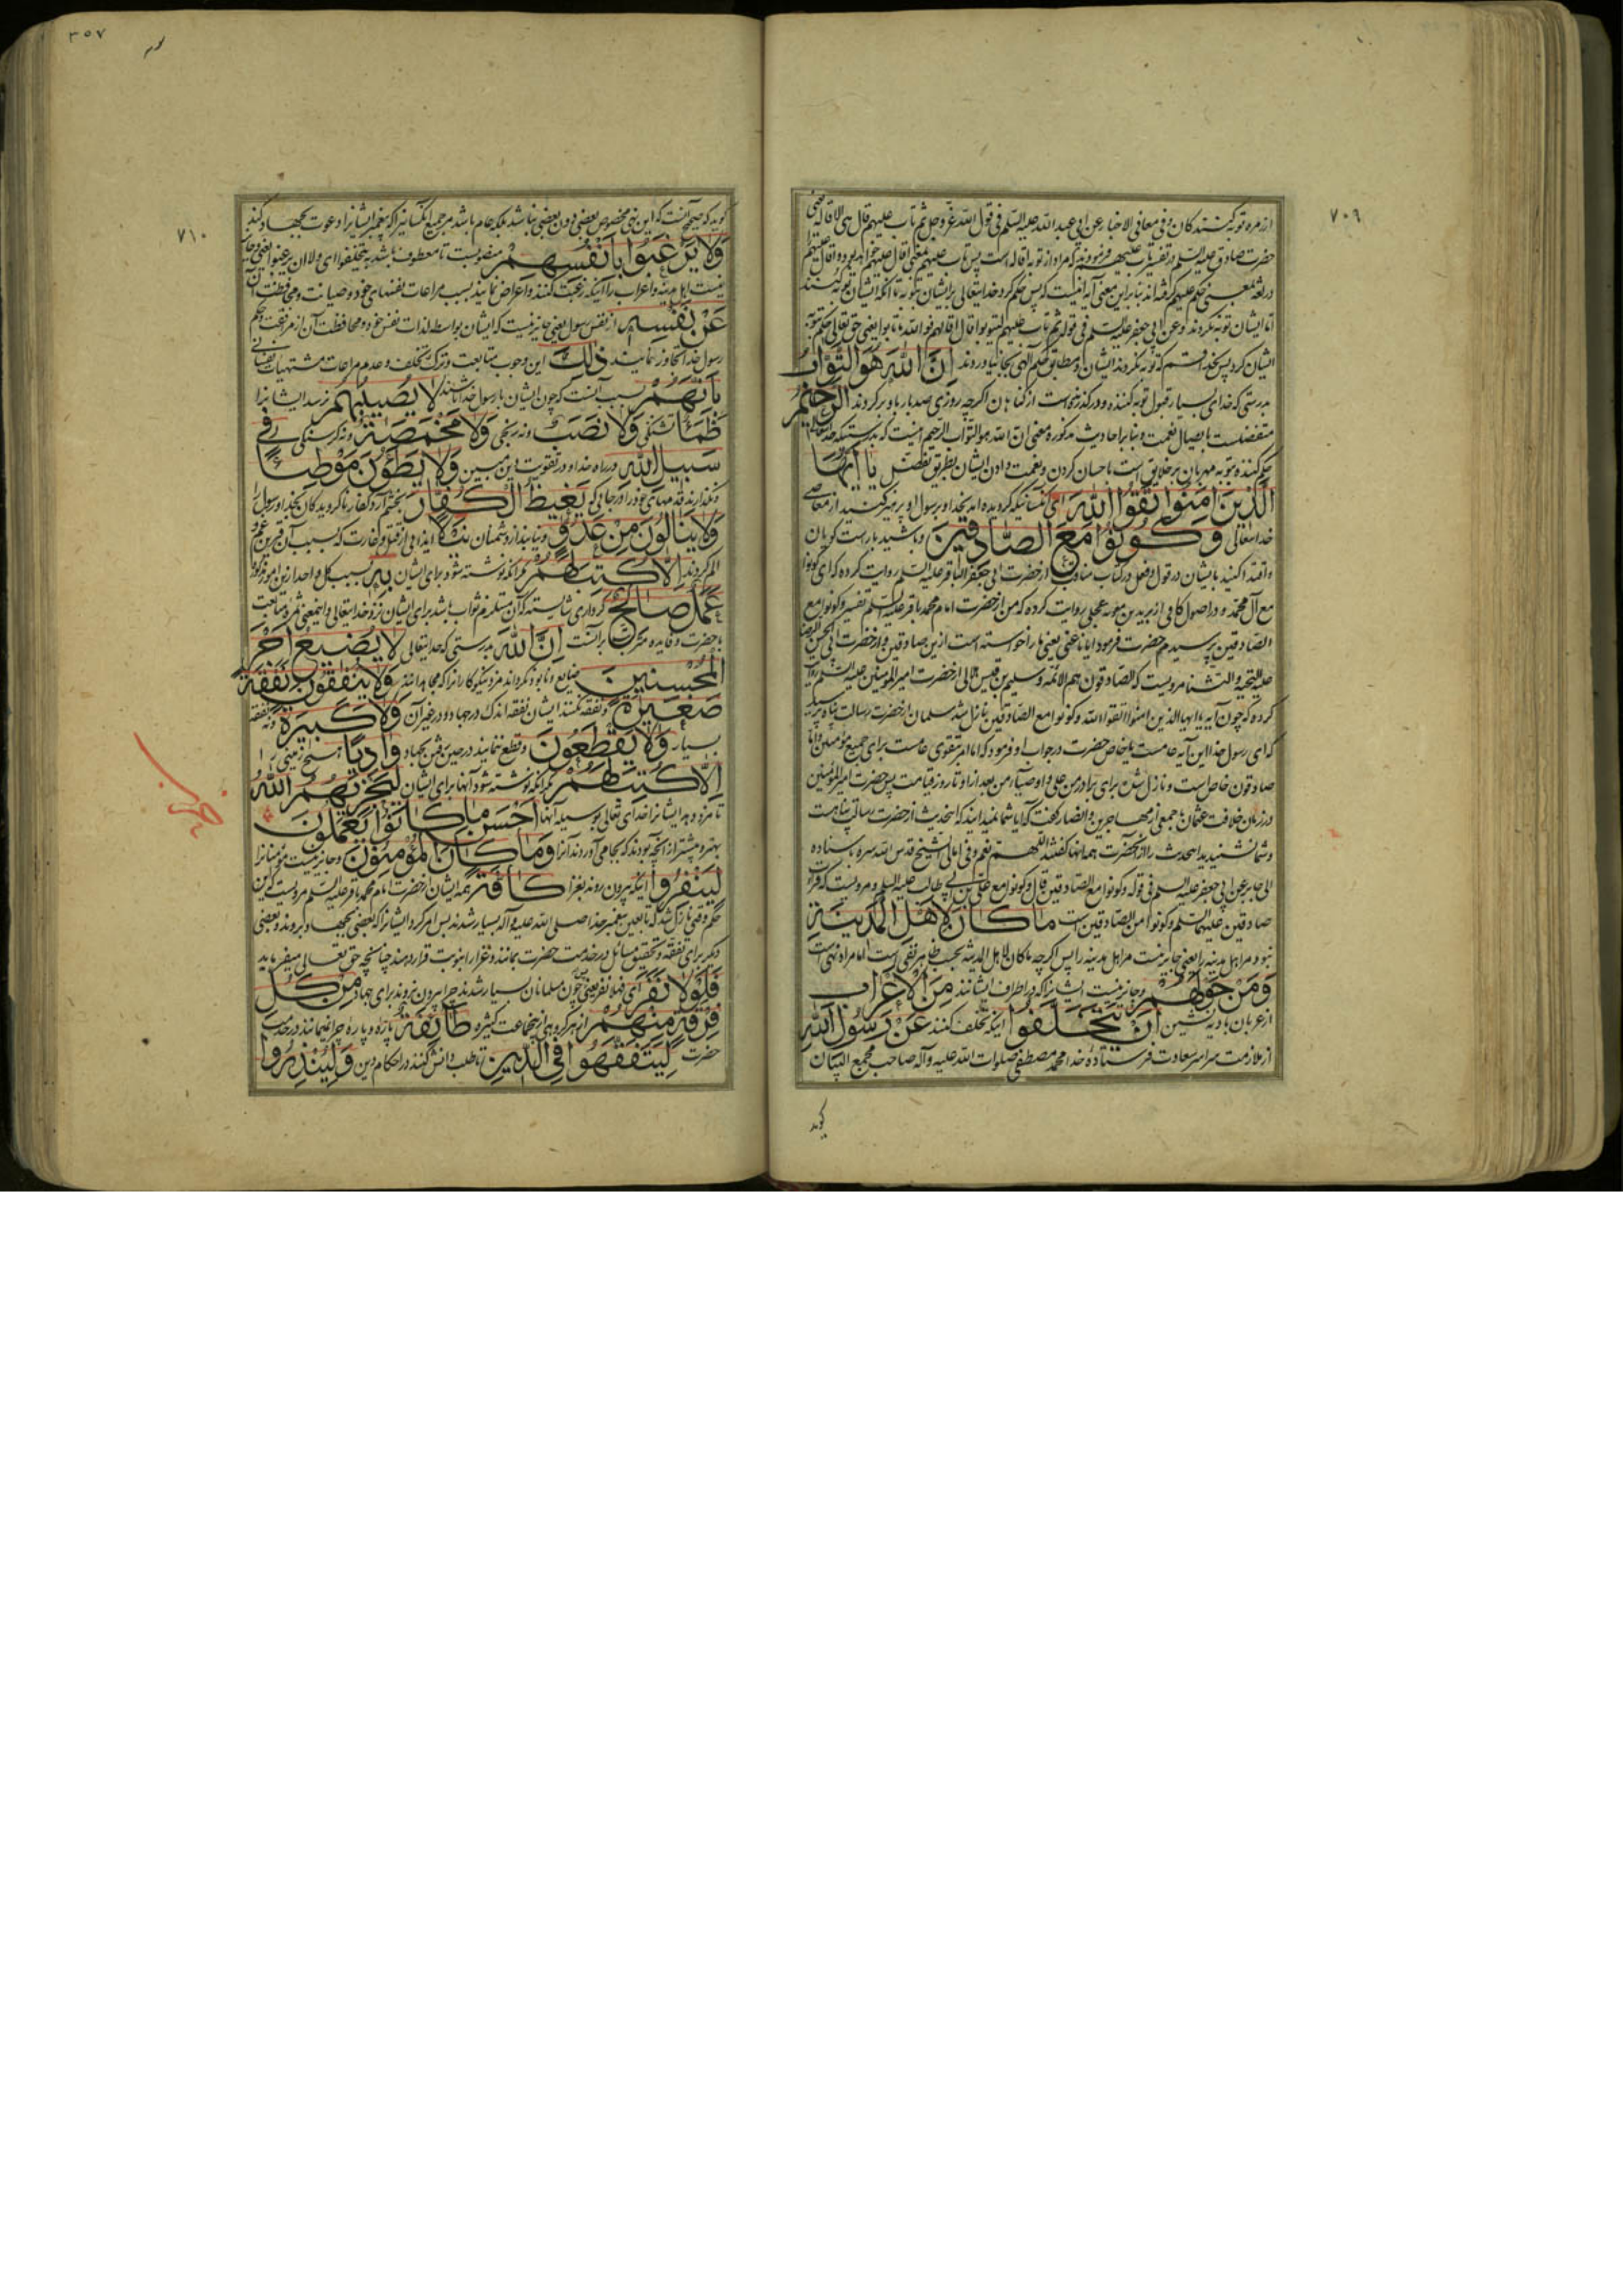 ٧٠٩
از زمره توبه کنندکان و فی معانی الاخبار عن ابی عبد الله علیه السلم فی قول الله عز و جل ثم تاب علیهم قال هی الاقالة یعنی
حضرت صادق علیه السلم در تفسیر تاب علیهم فرمودند که مراد از توبه اقاله است پس تاب علیهم بمعنی اقال علیهم خواهد بود و اقال علیهم
در لغة بمعنی حکم علیهم بنابراین معنی آیه اینست که پس حکم کرد خدایتعالی بر ایشان بتوبه تا آنکه ایشان توبه کنند
اما ایشان توبه نکردند و عن ابی جعفر علیه السلم فی قوله ثم تاب علیهم لیتوبوا قال اقالهم فوالله ما تابوا یعنی حق تعالی حکم بتوبه
ایشان کرد پس بخدا قسم که توبه نکردند ایشان و مطابق حکم الهی بجا نیاوردند ان الله هو التواب
بدرستی که خدای بسیار قبول توبه کننده و درکذرنده است از کناهان اکرچه روزی صد بار باو برکردند الرحیم
متفضلست بایصال نعمت و بنابر احادیث مذکوره معنی ان الله هو التواب الرحیم اینست که بدرستیکه خدایتعالی
حکم کننده بتوبه مهربان بر خلایق است باحسان کردن و نعمت دادن ایشان بطریق تفضل یا ایها
الذین امنوا اتقوا الله ای کسانیکه کرویده‌اند بخدا و رسول او پرهیز کنید از معاصی
خدایتعالی و کونوا مع الصادقین و باشید با راست کویان
و اقتدا کنید بایشان در قول و فعل در کتاب مناقب از حضرت ابی جعفر الباقر علیه السلم روایت کرده که ای کونوا
مع آل محمد و در اصول کافی از برید بن معویه عجلی روایت کرده که من از حضرت امام محمد باقر علیه السلم تفسیر و کونوا مع
الصادقین پرسیدم حضرت فرمود ایانا عنی یعنی ما را خواسته است ازین صادقین و از حضرت ابی الحسن الرضا
علیه التحیة و الثناء مرویست که الصادقون هم الائمه و سلیم بن قیس هلالی از حضرت امیر المومنین علیه السلم روایت
کرده که چون آیه یا ایها الذین امنوا اتقوا الله و کونوا مع الصادقین نازل شد سلمان از حضرت رسالت پناه پرسید
که ای رسول خدا این آیه عامست یا خاص حضرت در جواب او فرمود که اما امر بتقوی عامست برای جمیع مؤمنین و اما
صادقون خاص است و نازل شده برای برادر من علی و اوصیاء من بعد از او تا روز قیامت پس حضرت امیر المؤمنین
در زمان خلافت عثمان با جمعی از مهاجرین و انصار کفت که آیا شما میدانید که اینحدیث از حضرت رسالت پناهست
و شما شنیدید اینحدیث را از آنحضرت همه انها کفتند اللهم نعم و فی امالی الشیخ قدس الله سره باسناده
الی جابر عن ابی جعفر علیه السلم فی قوله و کونوا مع الصادقین قال و کونوا مع علی بن ابی طالب علیه السلم و مرویست که قرائت
صادقین علیهما السلم و کونوا من الصادقین است ما کان لاهل المدینة
نبود مر اهل مدینه را یعنی جایز نیست مر اهل مدینه را پس اکرچه ما کان لاهل المدینة بحسب ظاهر نفی است اما مراد نهی است
و من حولهم و جایز نیست ایشانرا که در اطراف ایشانند من الاعراب
از عربان بادیه نشین ان یتخلفوا اینکه تخلف کنند عن رسول الله
از ملازمت سراسر سعادت فرستاده خدا محمد مصطفی صلوات الله علیه و آله صاحب مجمع البیان
کوید
٣٥٧
٧١٠
کوید که صحیح آنست که این نهی مخصوص بعضی دون بعضی نباشد بلکه عام باشد مر جمیع آنکسانیرا که پیغمبر ایشانرا دعوت بجهاد کند
ولا یرغبوا بانفسهم منصوبست تا معطوف باشد به یتخلفوا ای و لا ان یرغبوا یعنی و جایز
نیست اهل مدینه و اعراب را اینکه رغبت کنند و اعراض نمایند بسبب مراعات نفسهای خود و صیانت و محافظت آن
عن نفسه از نفس رسول یعنی جایز نیست که ایشان بواسطه لذات نفس خود و محافظت آن از مرافقت و حکم
رسول خدا تجاوز نمایند ذلک این وجوب متابعت و ترک تخلف و عدم مراعات مشتهیات نفسانی
بانهم بسبب آنست که چون ایشان با رسول خدا باشند لا یصیبهم نرسد ایشانرا
ظمأ تشنکی ولا نصب و نه رنجی ولا مخمصة و نه کرسنکی فی
سبیل الله در راه خدا و در تقویت دین مبین ولا یطؤن موطئا
و نکذارند قدمهای خود را در جایی که یغیظ الکفار بخشم آرد کفار ناکرویدکان بخدا و رسول را
ولا ینالون من عدو و نیابند از دشمنان نیلا ایذایی از قتل و غارت که بسبب آن قرین غم و
الم کردند الا کتب لهم مکر آنکه نوشته شود برای ایشان به بسبب کل واحد ازین امور مذکوره
عمل صالح کرداری شایسته که آن مستلزم ثواب باشد برای ایشان نزد خدایتعالی و اینمعنی ثمره متابعت
با حضرت و فایده مترتب بر آنست ان الله بدرستی که خدایتعالی لا یضیع اجر
المحسنین ضایع و نابود نکرداند مزد نیکوکارانرا که مجاهدانند ولا ینفقون نفقة
صغیرة و نفقه نکنند ایشان نفقه اندک در جهاد و در غیر آن ولا کبیرة و نه نفقه
بسیار ولا یقطعون و قطع ننمایند در حین رفتن بجهاد وادیا هیچ زمینی را
الا کتب لهم مکر آنکه نوشته شود آنها برای ایشان لیجزیهم الله
تا مزد دهد ایشانرا خدای تعالی بوسیله آنها احسن ما کانوا یعملون
بهتر و بیشتر از آنچه بودند که بجا می‌آوردند آنرا و ما کان المؤمنون و جایز نیست مؤمنانرا
لینفروا اینکه بیرون روند بغزا کافة همه ایشان از حضرت امام محمد باقر علیه السلم مرویست که این
حکم وقتی نازل شد که تابعین پیغمبر خدا صلی الله علیه و آله بسیار شدند پس امر کرد ایشانرا که بعضی بجهاد بروند و بعضی
دیکر برای تفقه و تحقیق مسائل در خدمت حضرت بمانند و غزا را بنوبت قرار دهند چنانچه حق تعالی میفرماید
فلولا نفر ای فهلا نفر یعنی پس چون مسلمانان بسیار شدند چرا بیرون نروند برای جهاد من کل
فرقة منهم از هر کروهی از جماعت کثیره طائفة پاره و پاره چرا نمیمانند در خدمت
حضرت لیتفقهوا فی الدین تا طلب دانش کنند در احکام دین ولینذروا